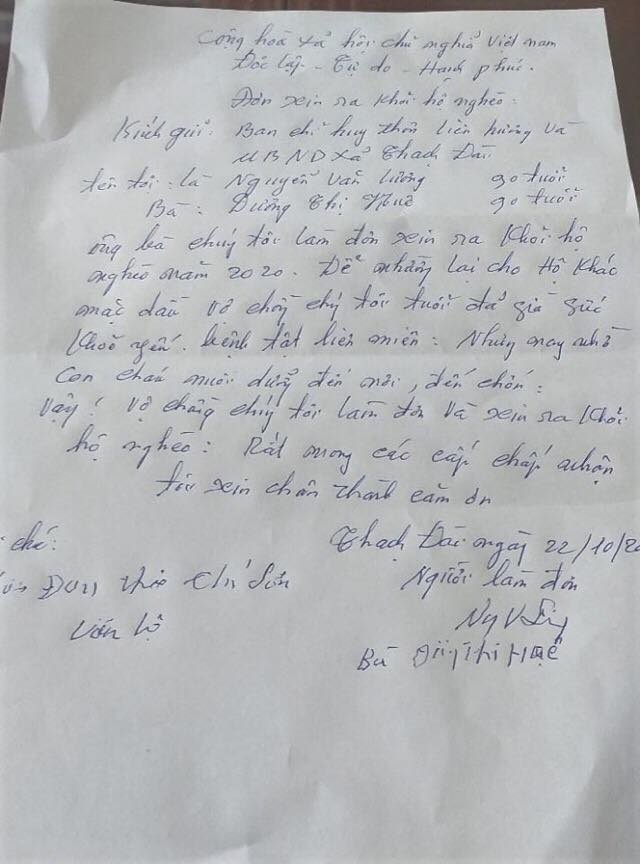 Cộng hoà xả hội chủ nghĩa Việt nam
Độc lập - Tự do - Hạnh phúc.
Đơn xin ra khỏi hộ nghèo.
Kính gửi: Ban chỉ huy thôn liên hương và
UBND xã Thạch Đài
tên tôi: là Nguyễn văn lương 90 tuổi
Bà: Dương Thị Huê 90 tuổi
ông bà chúng tôi làm đơn xin ra khỏi hộ
nghèo năm 2020. Để nhường lại cho Hộ khác
mặc dầu vợ chồng chúng tôi tuổi đả già sức
khoẻ yếu. bệnh tật liên miên: Nhưng may nhờ
con cháu nuôi dưỡng đến nơi, đến chốn:
Vậy! Vợ chồng chúng tôi làm đơn và xin ra khỏi
hộ nghèo: Rất mong các cấp chấp nhận
tôi xin chân thành cảm ơn
chú:
Thạch Đài ngày 22/10/20
Đơn
Người làm đơn
Bà Thị Huệ